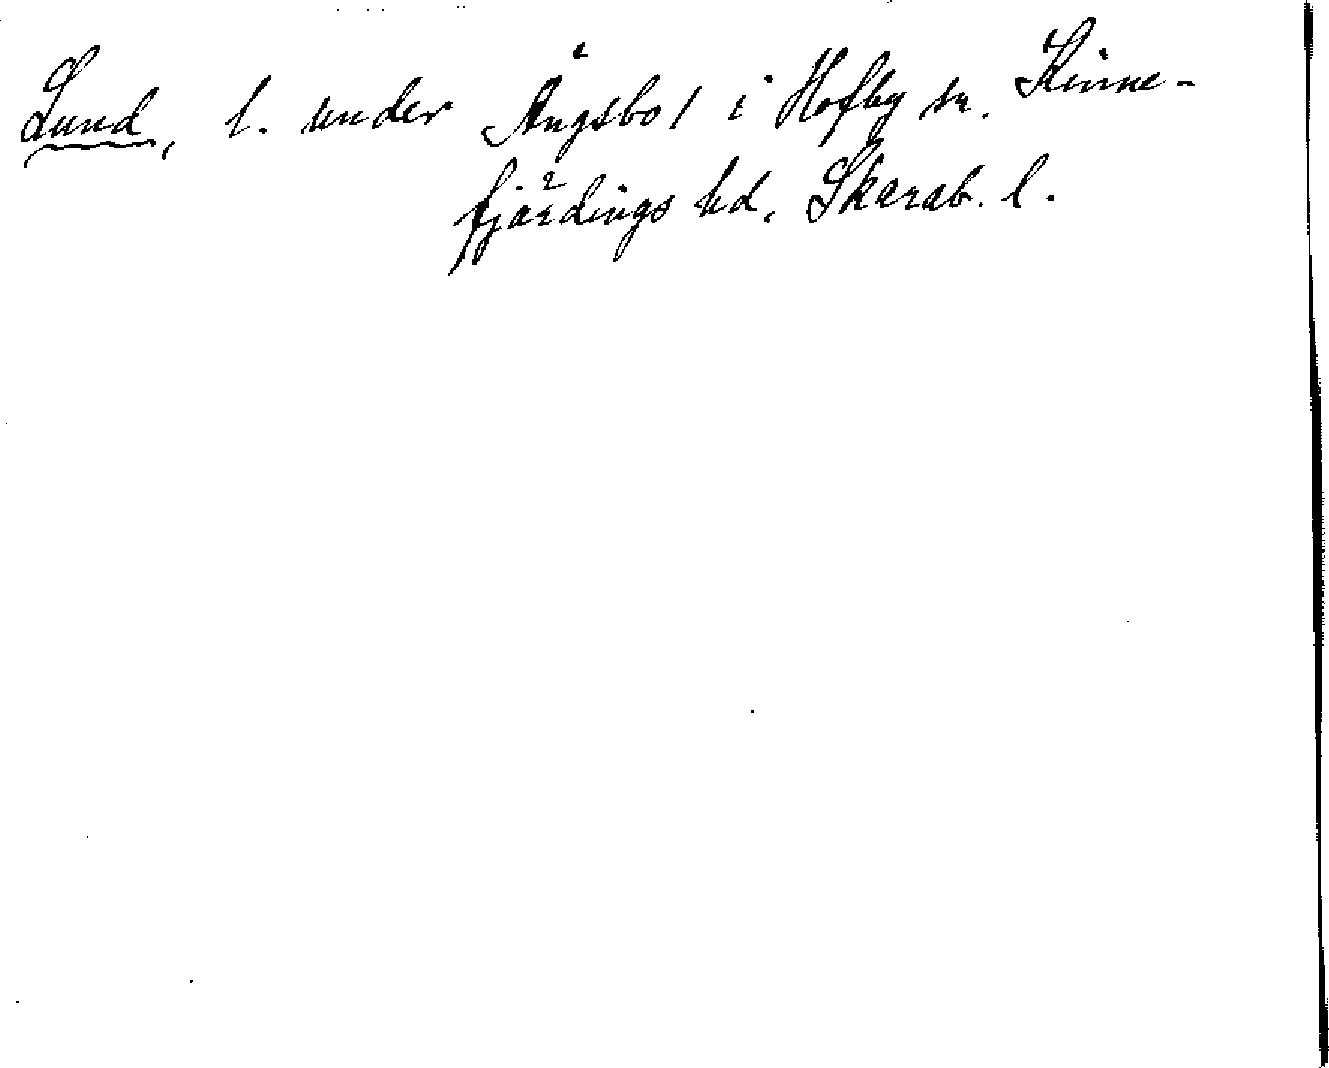 Lund, l. under Ängsbol i Hofby sn. Kinne-
fjärdings hd, Skarab. l.